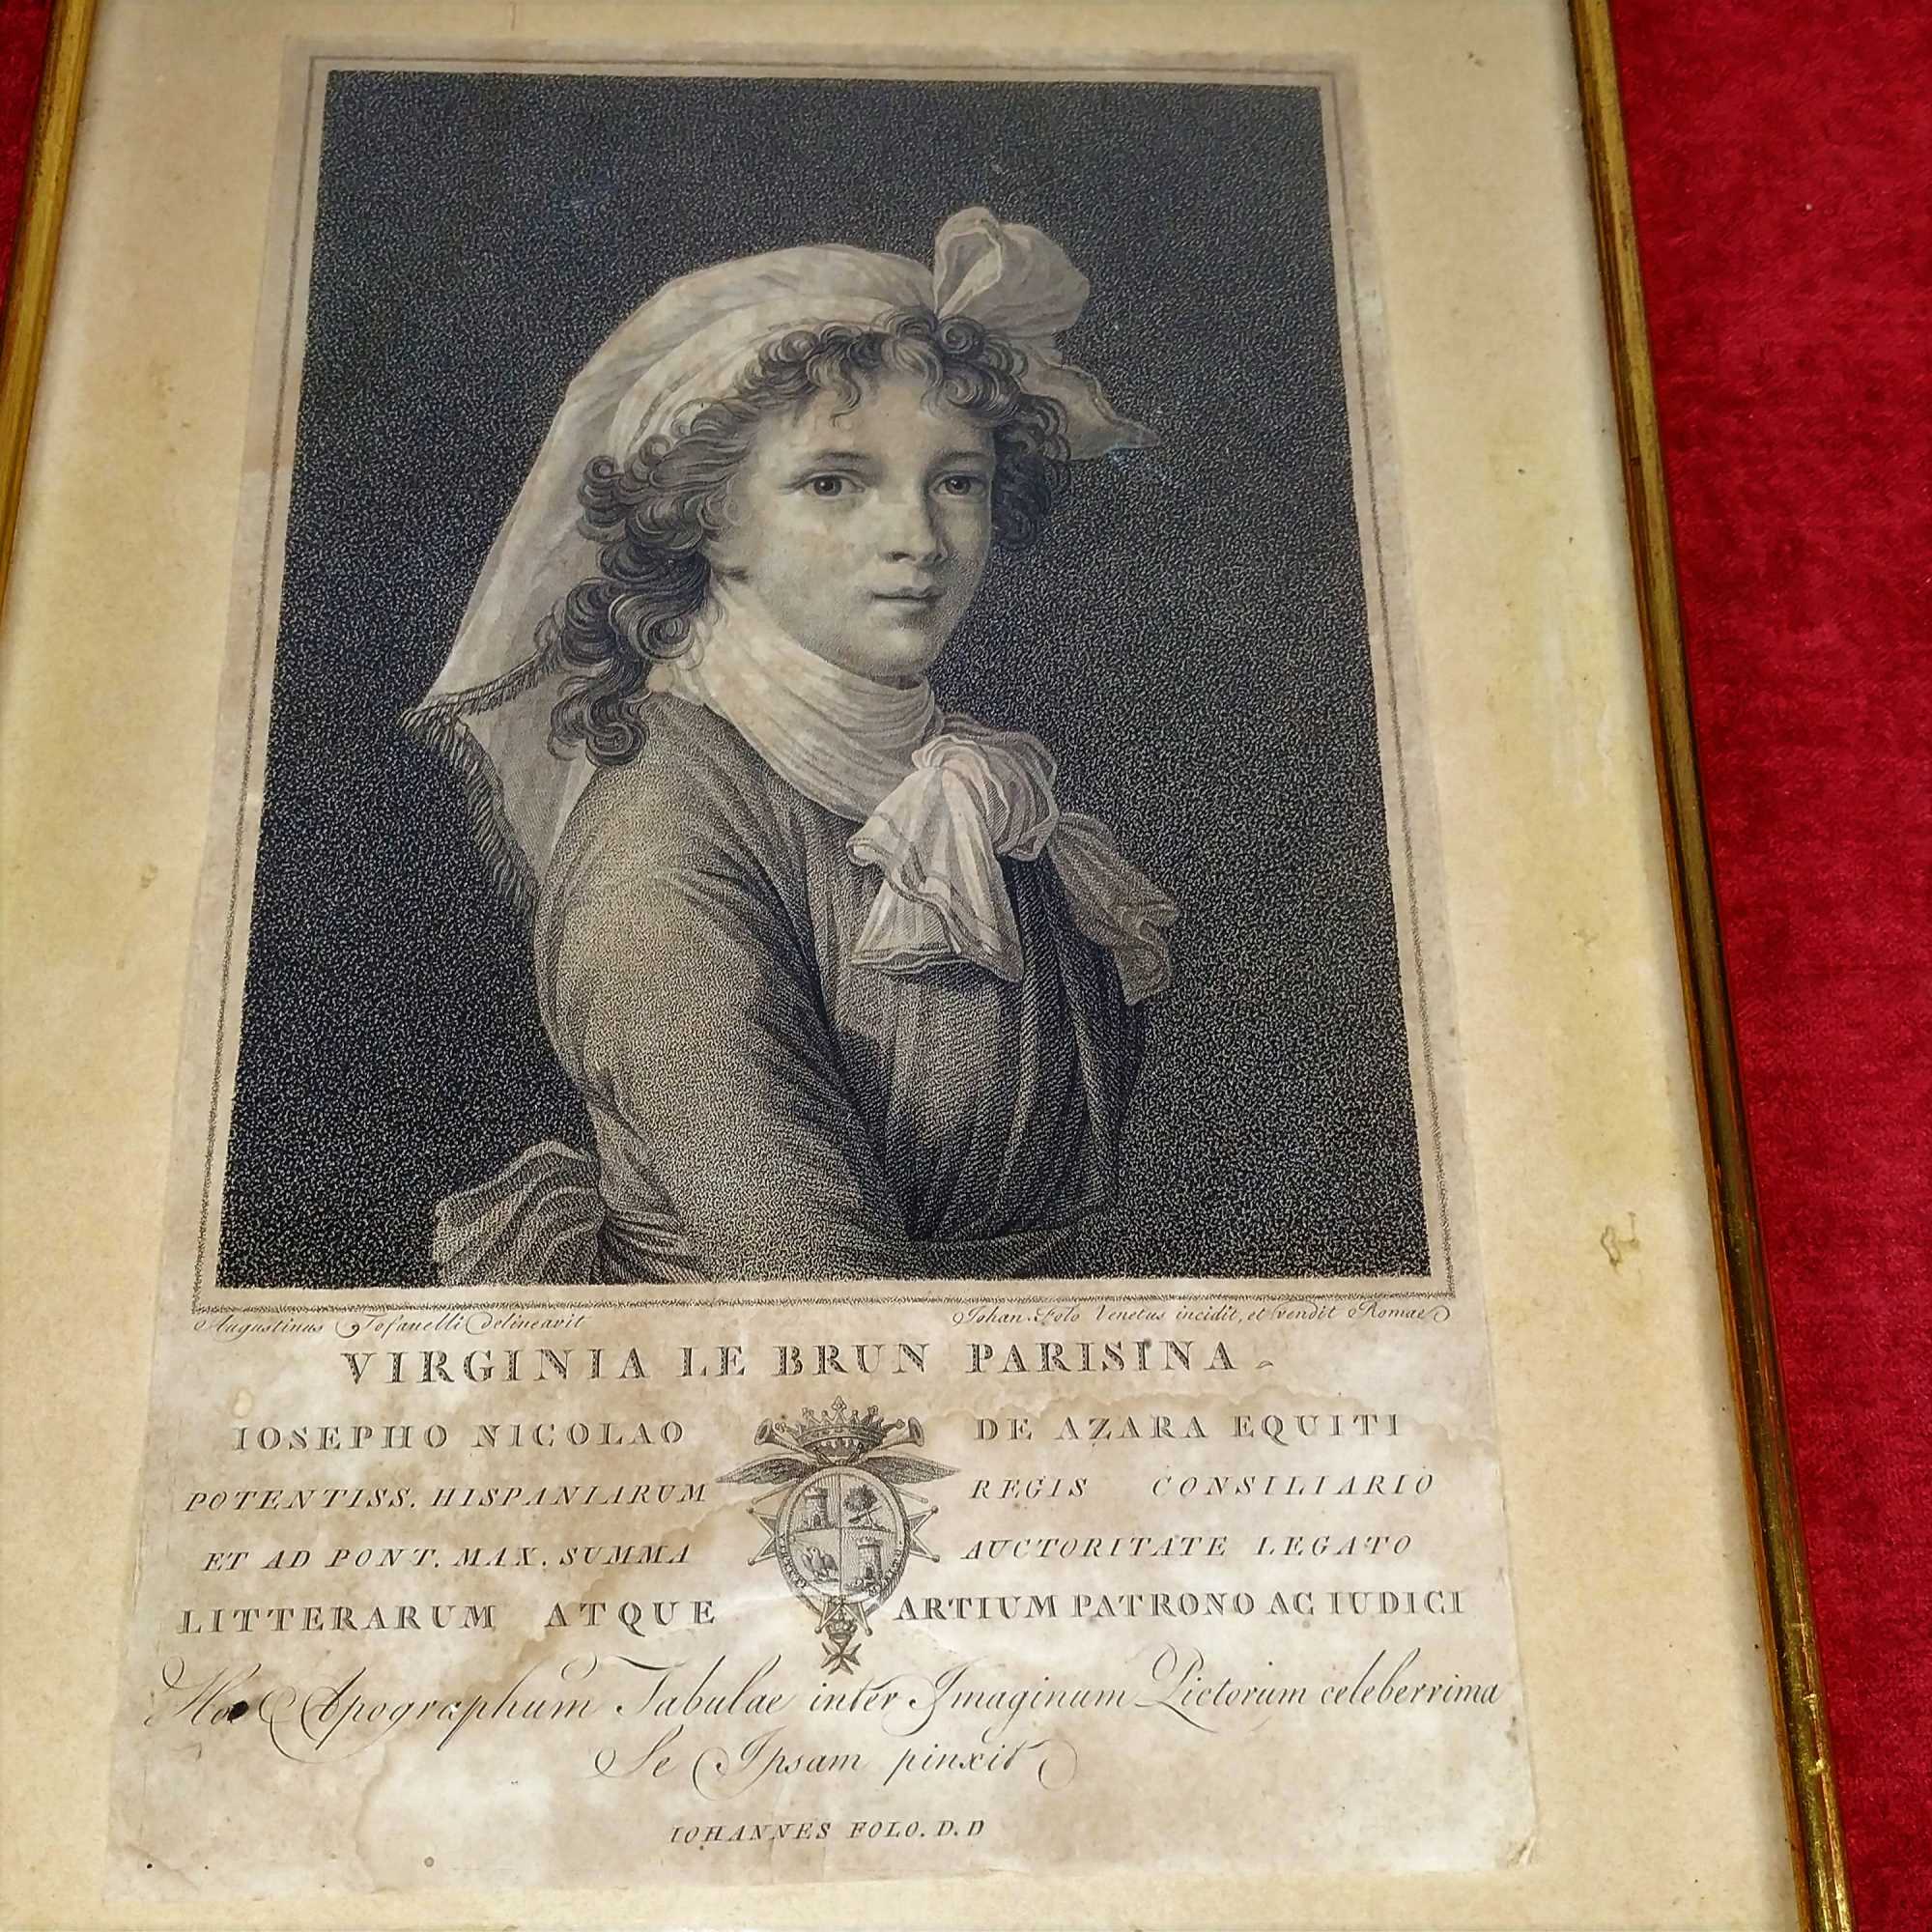 Augustinus Tofanelli delineavit
Iohan. Folo Venetus incidit, et vendit Romae
VIRGINIA LE BRUN PARISINA
IOSEPHO NICOLAO DE AZARA EQUITI
POTENTISS. HISPANIARUM REGIS CONSILIARIO
ET AD PONT. MAX. SUMMA AUCTORITATE LEGATO
LITTERARUM ATQUE ARTIUM PATRONO AC IUDICI
Hoc Apographum Tabulae inter Imaginum Pictorum celeberrima
Se Ipsam pinxit
IOHANNES FOLO. D. D